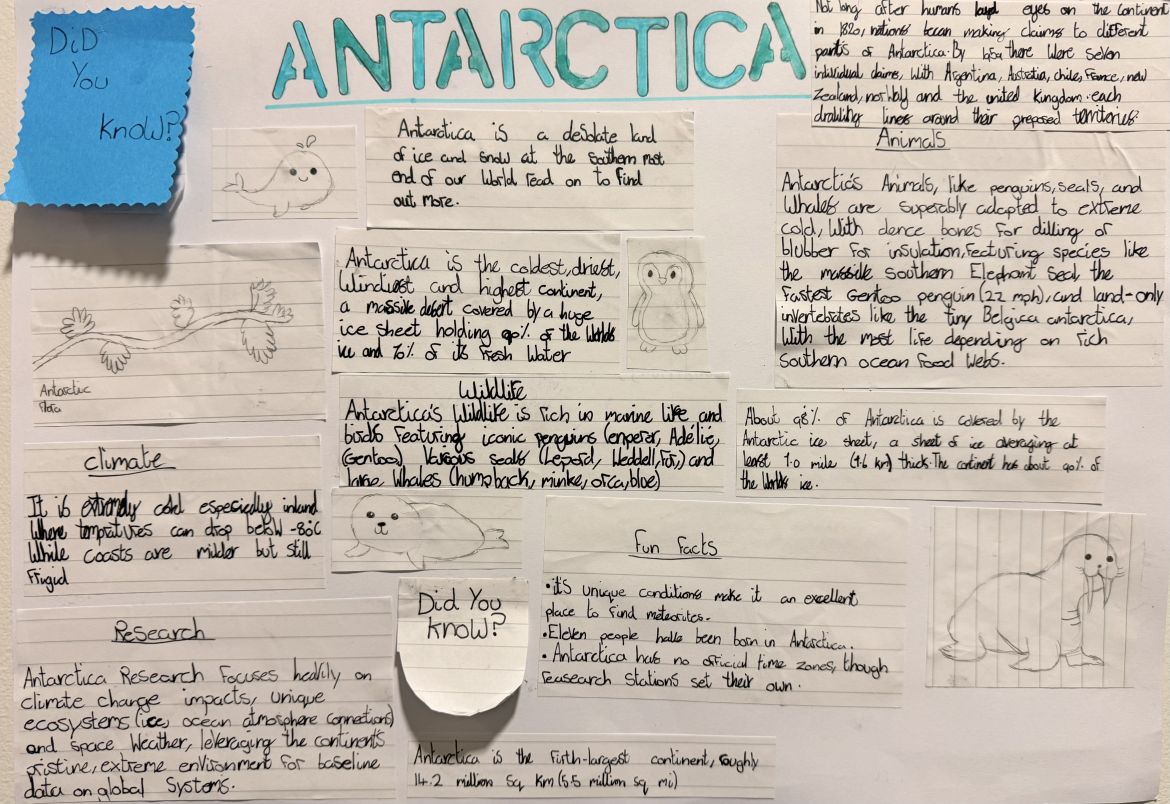 DiD
You
know?
ANTARCTICA
Not long after humans layd eyes on the continent
in 1820, nations began making claims to different
parts of Antarctica. By 1950 there were seven
individual claims, with Argentina, Australia, chile, France, new
Zealand, norway and the united kingdom. each
drawing lines around their proposed territories.
Antarctica is a desolate land
of ice and snow at the Southern most
end of our World read on to find
out more.
Animals
Antarctic's Animals, like penguins, seals, and
Whales are superably adapted to extreme
cold, With dence bones for dilling or
blubber for insulation, featuring species like
the massive southern Elephant seal, the
fastest Gentoo penguin (22 mph), and land-only
invertebrates like the tiny Belgica antarctica,
With the most life depending on rich
southern ocean food webs.
Antarctica is the coldest, driest,
Windiest and highest continent,
a massive desert covered by a huge
ice sheet holding 90% of the Worlds
ice and 70% of its fresh Water
Antarctic
flora
Wildlife
Antarctica's Wildlife is rich in marine life and
birds featuring iconic penguins (emperor, Adélie,
(Gentoo) Various seals (Leperd, Weddell, Fur,) and
large Whales (humpback, minke, orca, blue)
About 98% of Antarctica is covered by the
Antarctic ice sheet, a sheet of ice averaging at
least 1.0 mile (1.6 km) thick. The continent has about 90% of
the Worlds ice.
climate
It is extremely cold especiedly inland
Where tempratures can drop below -80c
While coasts are milder but still
frigid
Fun facts
• it's unique conditions make it an excellent
place to find meteorites.
• Eleven people have been born in Antarctica.
• Antarctica has no official time zones, though
reasearch stations set their own.
Did You
know?
Research
Antarctica Research focuses heavily on
climate change impacts, unique
ecosystems (ice, ocean atmosphere connections)
and space Weather, leveraging the continent's
pristine, extreme environment for baseline
data on global Systems.
Antarctica is the fifth-largest continent, roughly
14.2 million sq km (5.5 million sq mi)